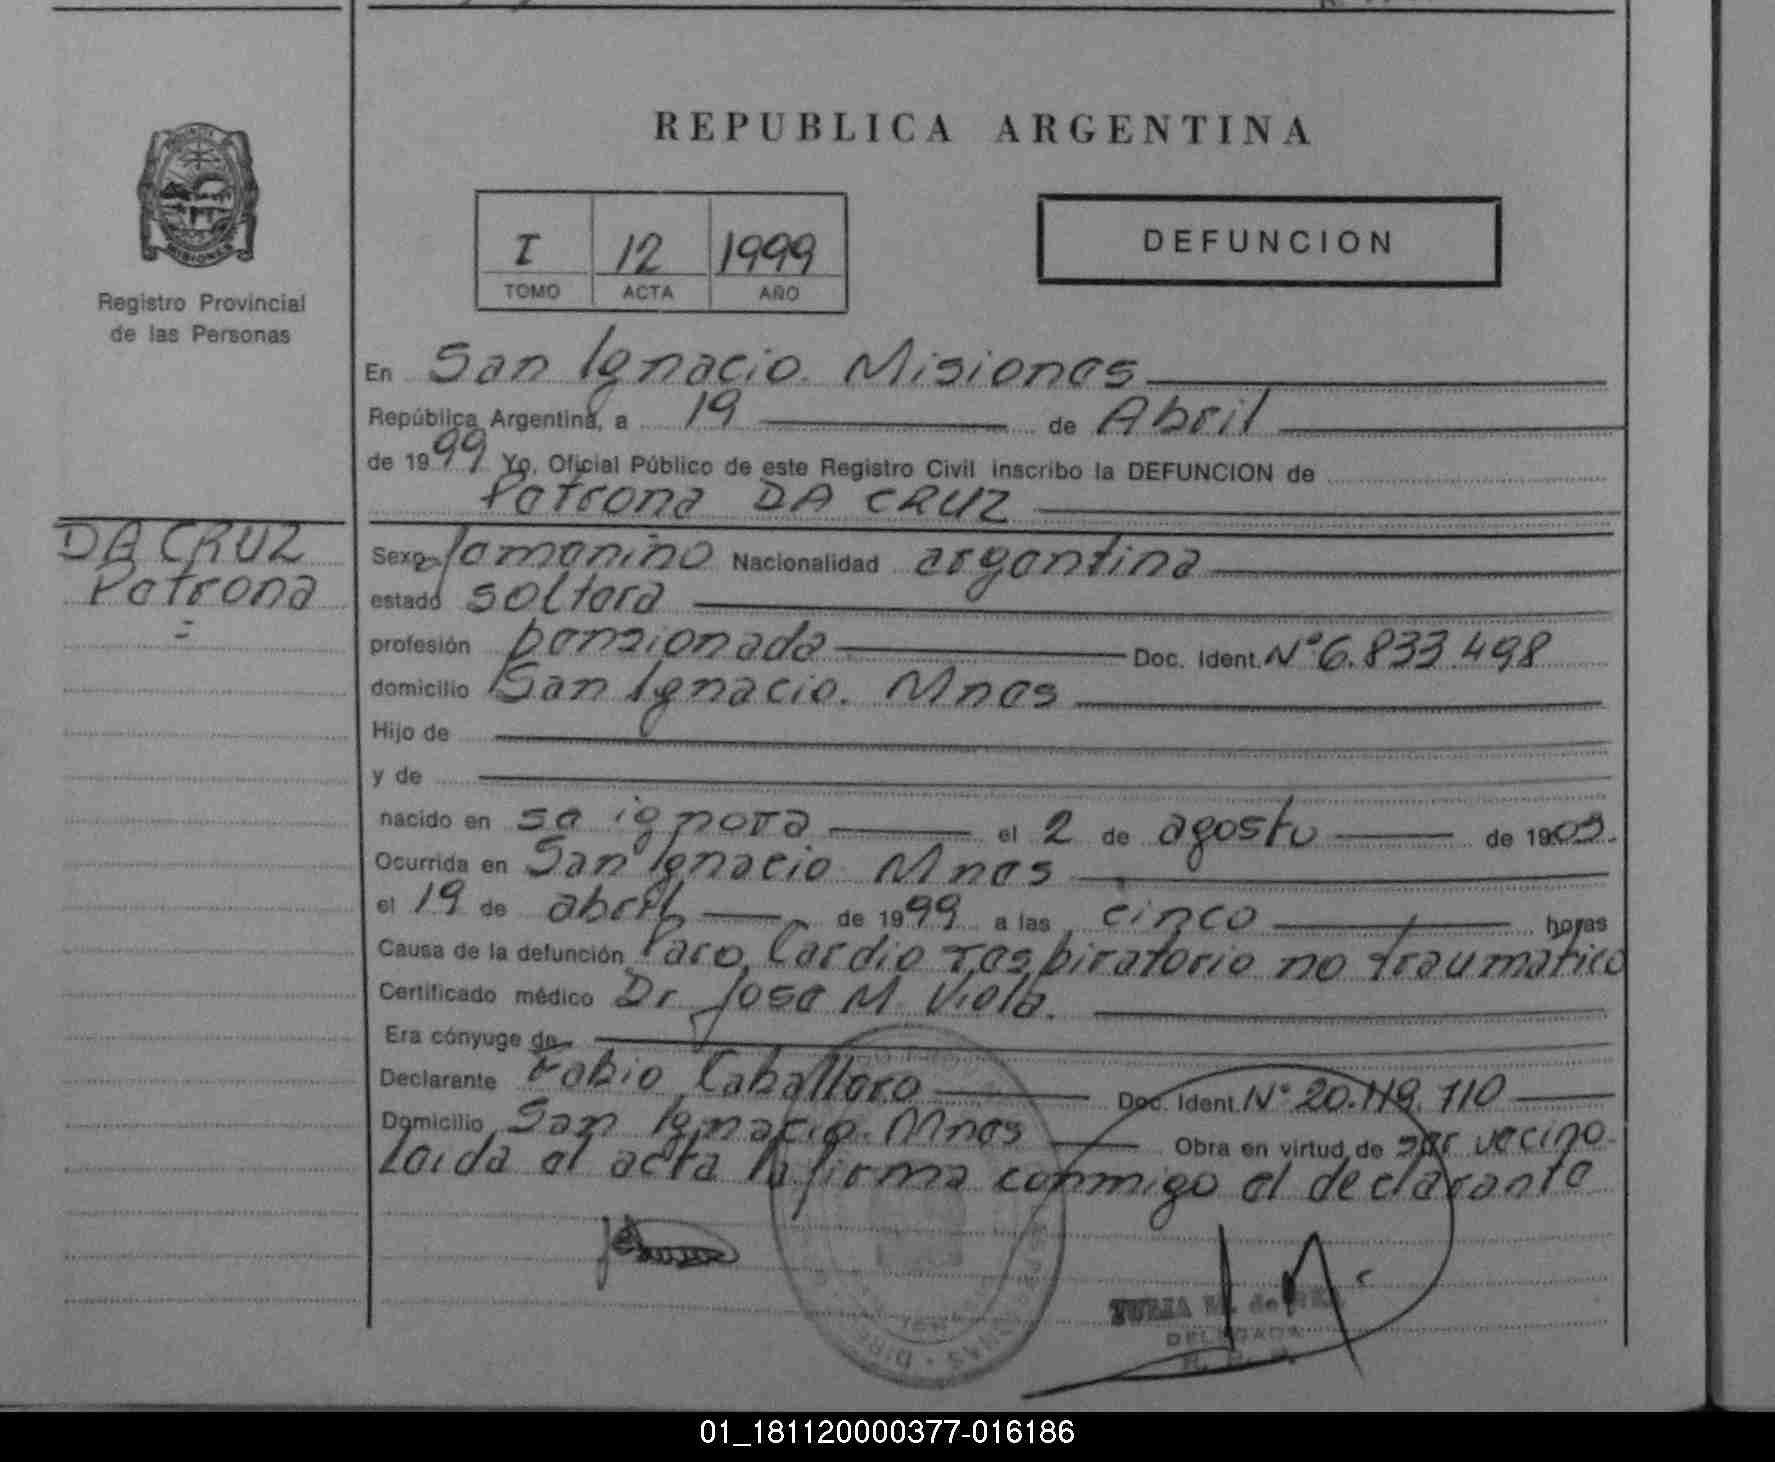 REPUBLICA ARGENTINA
MISIONES
Registro Provincial
de las Personas
I 12 1999
TOMO ACTA AÑO
DEFUNCION
En San Ignacio. Misiones
República Argentina, a 19 de Abril
de 1999 Yo, Oficial Público de este Registro Civil inscribo la DEFUNCION de
Petrona DA CRUZ
DA CRUZ
Petrona
Sexo femenino Nacionalidad argentina
estado soltera
profesión pensionada Doc. Ident. N° 6.833.498
domicilio San Ignacio. Mnes
Hijo de
y de
nacido en se ignora el 2 de agosto de 1909.
Ocurrida en San Ignacio Mnes
el 19 de abril de 1999 a las cinco horas
Causa de la defunción Paro Cardio respiratorio no traumatico
Certificado médico Dr Jose M Viola.
Era cónyuge de
Declarante Fabio Caballero Doc. Ident. N° 20.119.110
Domicilio San Ignacio. Mnes Obra en virtud de ser vecino.
Leida el acta la firma conmigo el declarante
DELEGADA
01_181120000377-016186